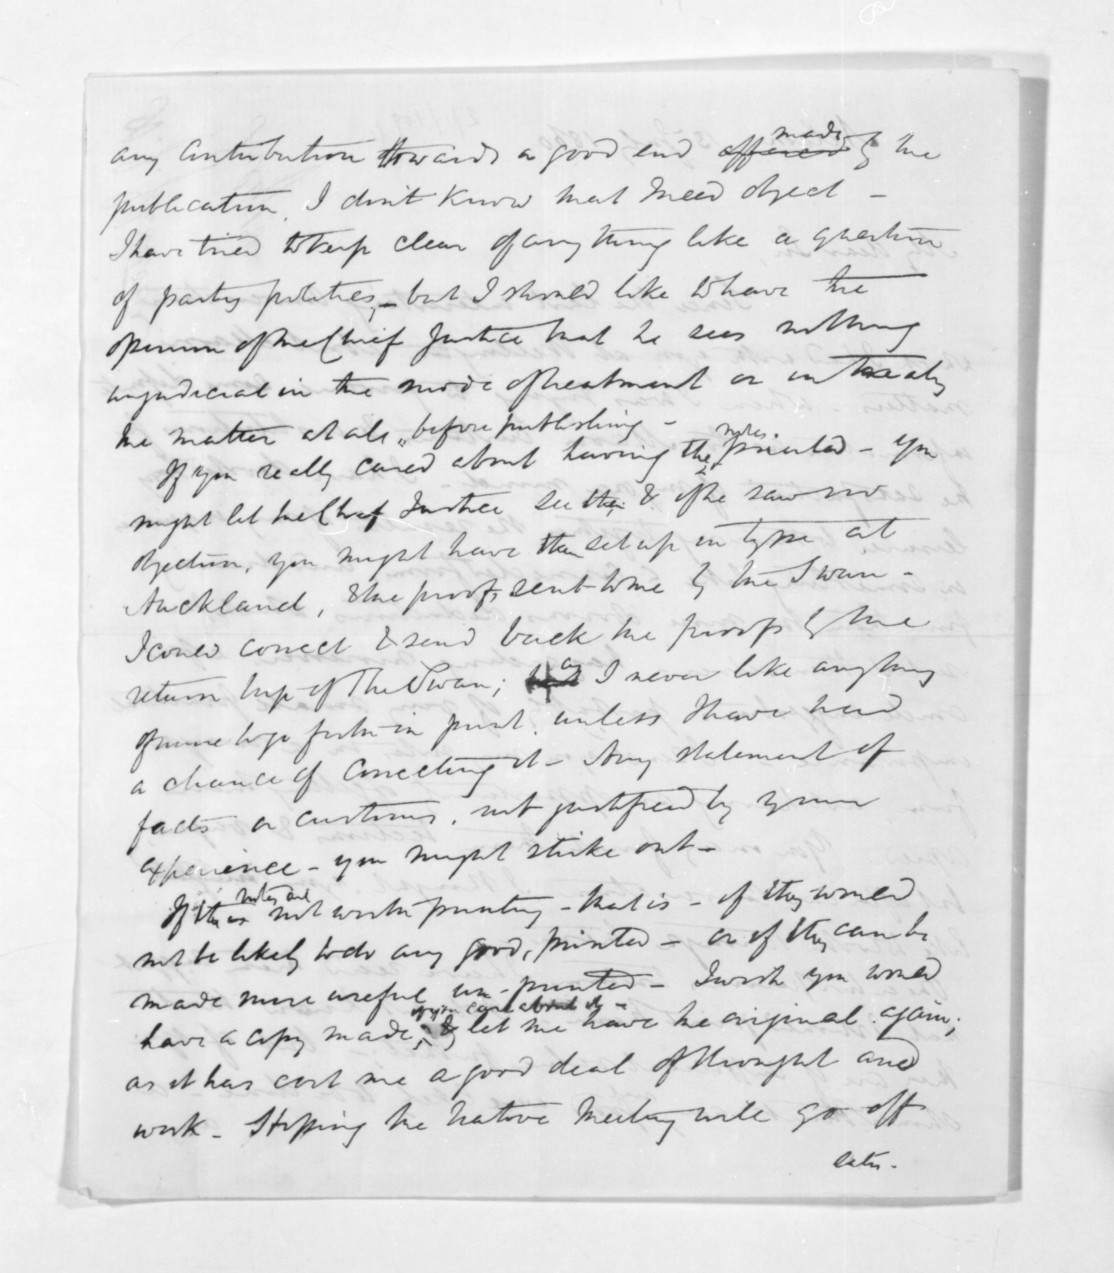 any contribution towards a good end offered made by the
publication, I don't know that I need object -
I have tried to keep clear of anything like a question
of party politics, - but I should like to have the
opinion of the Chief Justice that he sees nothing
unjudicial in the mode of treatment or in
the matter at all, before publishing -
If you really cared about having the notes printed - you
might let the Chief Justice see them & if he saw no
objection, you might have them set up in type at
Auckland, & the proofs sent to me by the Swan -
I could correct & send back the proofs by the
return trip of The Swan; as I never like anything
of mine to go forth in print, unless I have had
a chance of correcting it - Any statement of
facts or customs, not justified by your
experience - you might strike out -
If the notes are not worth printing - that is - if they would
not be likely to do any good, printed - or if they can be
made more useful un-printed - I wish you would
have a copy made, if you care about it - & let me have the original again;
as it has cost me a good deal of thought and
work - Hoping the Native Meeting will go off